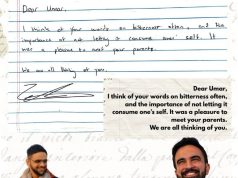 Dear Umar,
I think of your words on bitterness often, and the
importance of not letting it consume one's self. It
was a pleasure to meet your parents.
We are all thinking of you.
Dear Umar,
I think of your words on bitterness often,
and the importance of not letting it
consume one's self. It was a pleasure to
meet your parents.
We are all thinking of you.